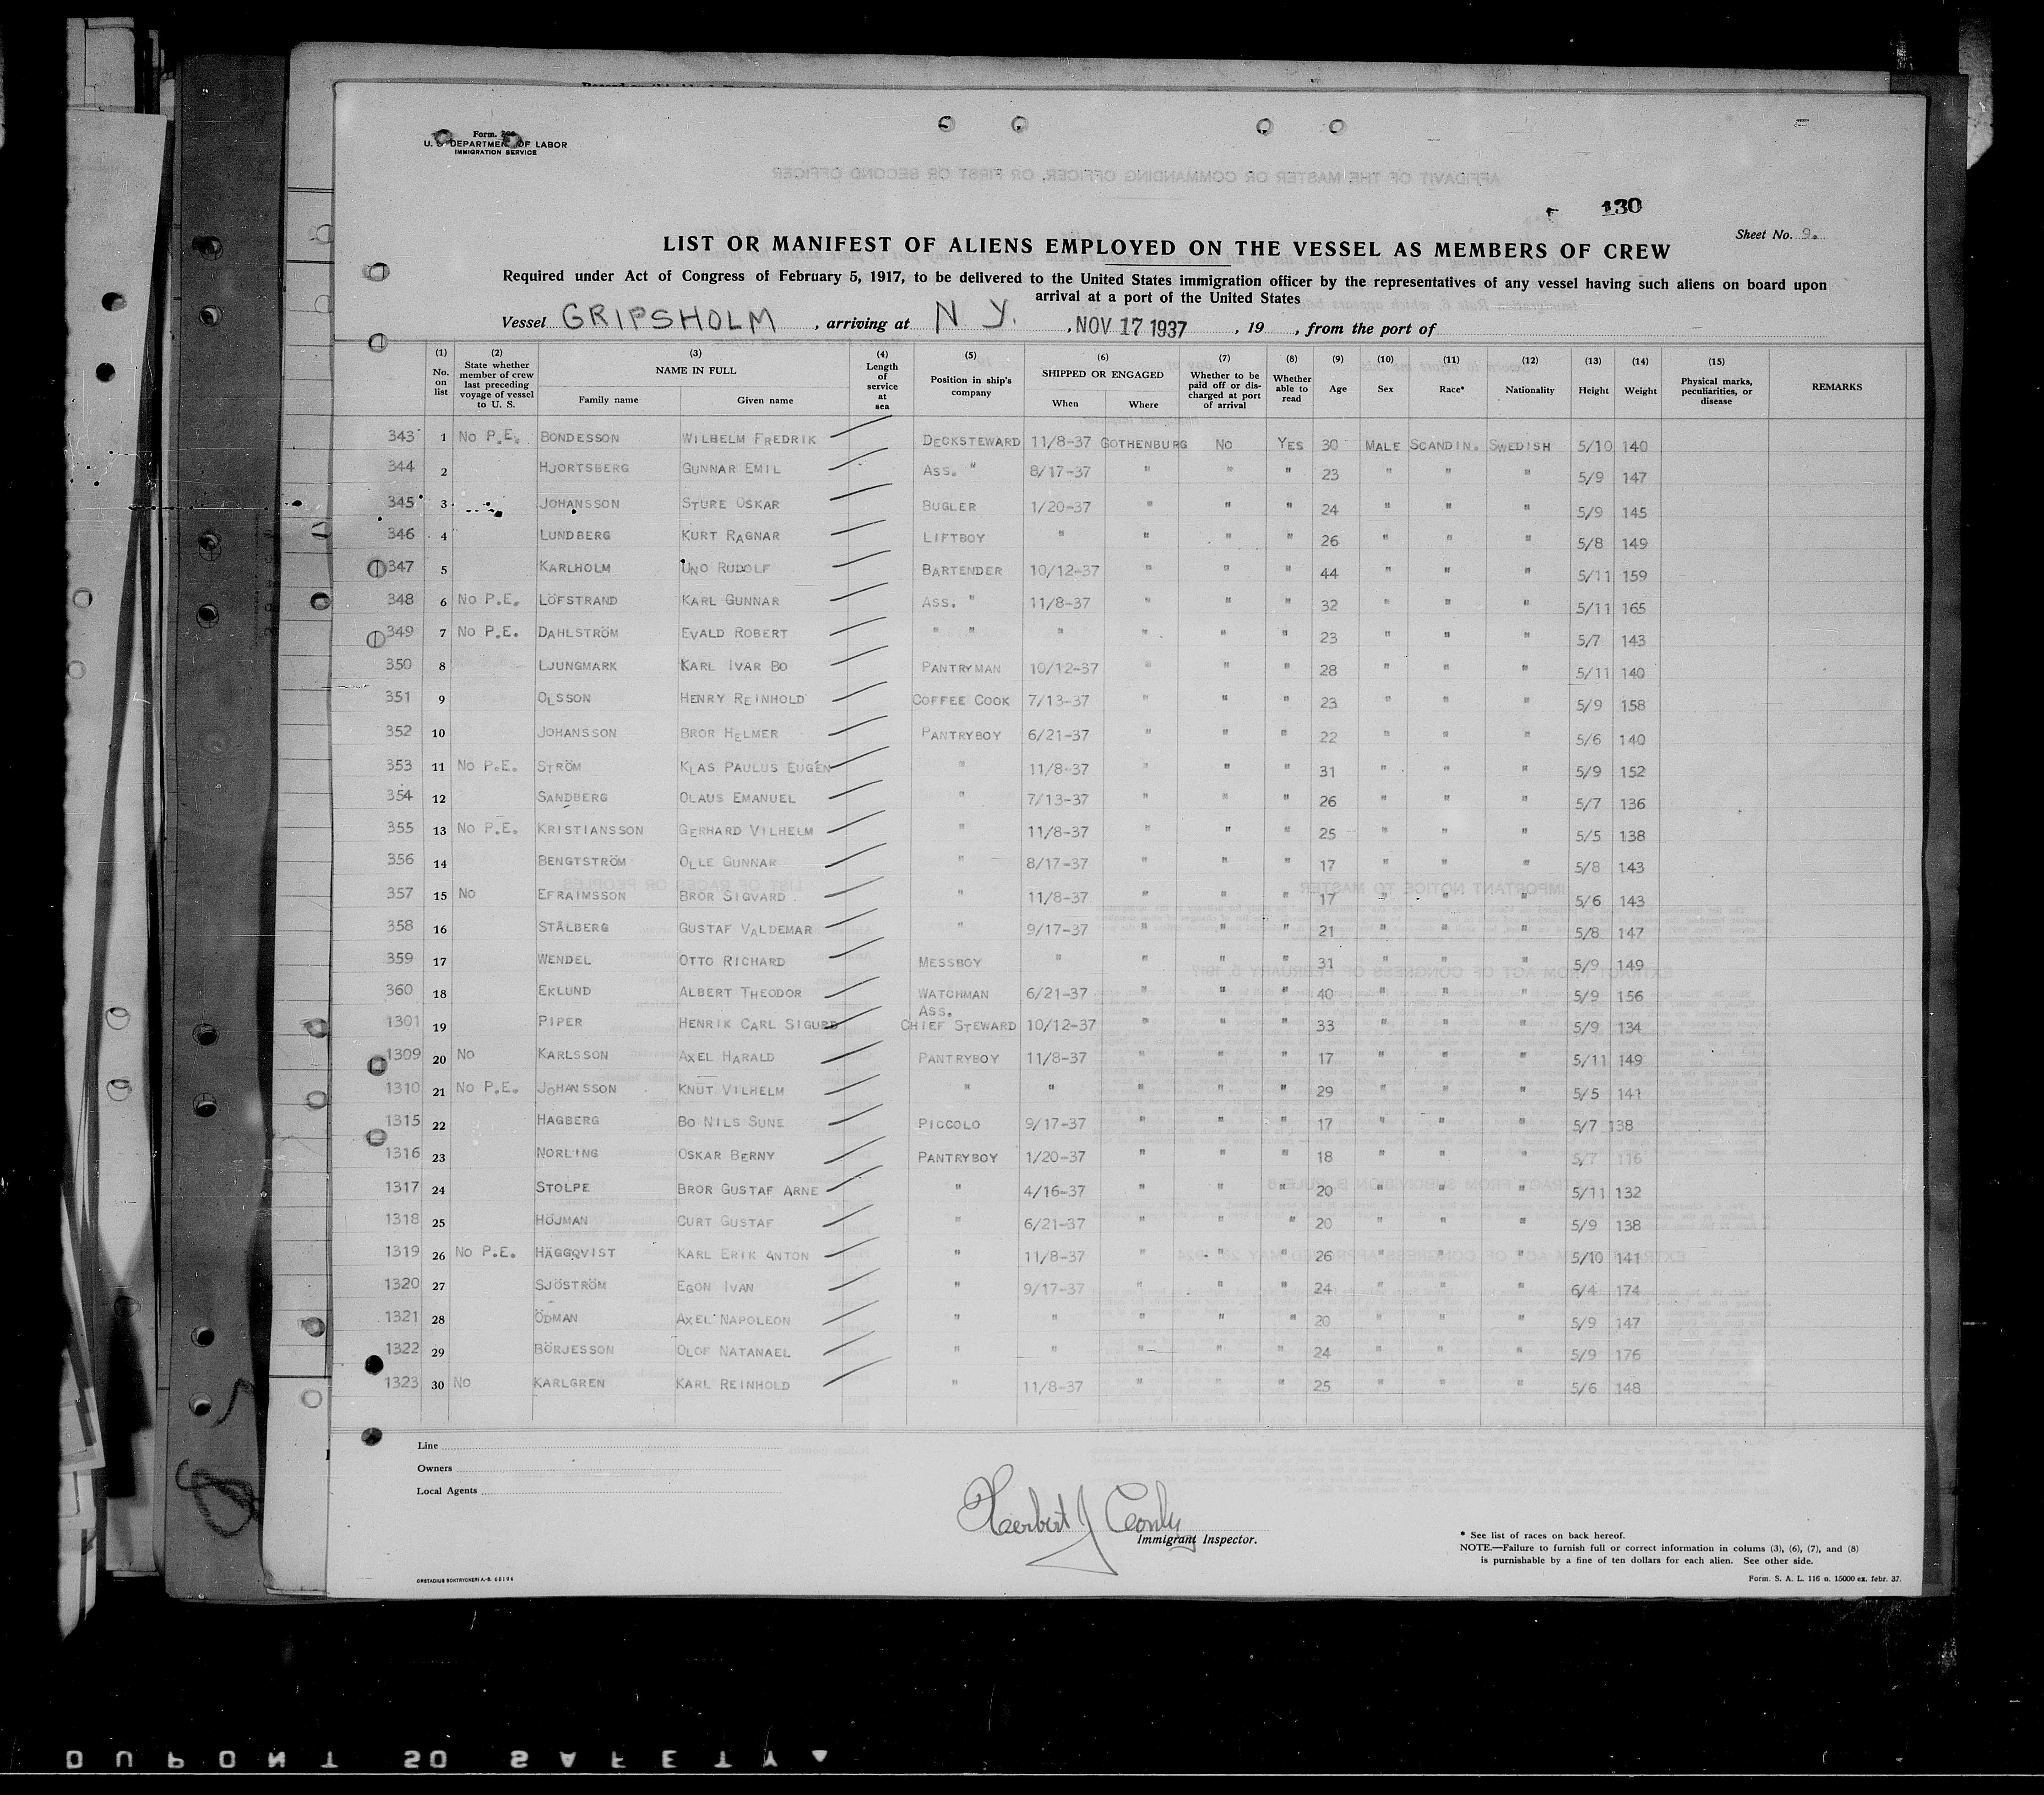 Form.
U. S. DEPARTMENT OF LABOR
IMMIGRATION SERVICE
130
Sheet No. 9.
LIST OR MANIFEST OF ALIENS EMPLOYED ON THE VESSEL AS MEMBERS OF CREW
Required under Act of Congress of February 5, 1917, to be delivered to the United States immigration officer by the representatives of any vessel having such aliens on board upon
arrival at a port of the United States
Vessel GRIPSHOLM, arriving at N. Y., NOV 17 1937, 19 , from the port of
(1) No. on list (2) State whether member of crew last preceding voyage of vessel to U. S. (3) NAME IN FULL Family name Given name (4) Length of service at sea (5) Position in ship's company (6) SHIPPED OR ENGAGED When Where (7) Whether to be paid off or discharged at port of arrival (8) Whether able to read (9) Age (10) Sex (11) Race* (12) Nationality (13) Height (14) Weight (15) Physical marks, peculiarities, or disease REMARKS
343 1 No P.E. BONDESSON WILHELM FREDRIK DECKSTEWARD 11/8-37 GOTHENBURG NO YES 30 MALE SCANDIN. SWEDISH 5/10 140
344 2 HJORTSBERG GUNNAR EMIL ASS. " 8/17-37 " " " 23 " " " 5/9 147
345 3 JOHANSSON STURE OSKAR BUGLER 1/20-37 " " " 24 " " " 5/9 145
346 4 LUNDBERG KURT RAGNAR LIFTBOY " " " " 26 " " " 5/8 149
347 5 KARLHOLM UNO RUDOLF BARTENDER 10/12-37 " " " 44 " " " 5/11 159
348 6 No P.E. LÖFSTRAND KARL GUNNAR ASS. " 11/8-37 " " " 32 " " " 5/11 165
349 7 No P.E. DAHLSTRÖM EVALD ROBERT " " " " " " 23 " " " 5/7 143
350 8 LJUNGMARK KARL IVAR BO PANTRYMAN 10/12-37 " " " 28 " " " 5/11 140
351 9 OLSSON HENRY REINHOLD COFFEE COOK 7/13-37 " " " 23 " " " 5/9 158
352 10 JOHANSSON BROR HELMER PANTRYBOY 6/21-37 " " " 22 " " " 5/6 140
353 11 No P.E. STRÖM KLAS PAULUS EUGÉN " 11/8-37 " " " 31 " " " 5/9 152
354 12 SANDBERG OLAUS EMANUEL " 7/13-37 " " " 26 " " " 5/7 136
355 13 No P.E. KRISTIANSSON GERHARD VILHELM " 11/8-37 " " " 25 " " " 5/5 138
356 14 BENGTSTRÖM OLLE GUNNAR " 8/17-37 " " " 17 " " " 5/8 143
357 15 No EFRAIMSSON BROR SIGVARD " 11/8-37 " " " 17 " " " 5/6 143
358 16 STÅLBERG GUSTAF VALDEMAR " 9/17-37 " " " 21 " " " 5/8 147
359 17 WENDEL OTTO RICHARD MESSBOY " " " " 31 " " " 5/9 149
360 18 EKLUND ALBERT THEODOR WATCHMAN 6/21-37 " " " 40 " " " 5/9 156
1301 19 PIPER HENRIK CARL SIGURD ASS. CHIEF STEWARD 10/12-37 " " " 33 " " " 5/9 134
1309 20 No KARLSSON AXEL HARALD PANTRYBOY 11/8-37 " " " 17 " " " 5/11 149
1310 21 No P.E. JOHANSSON KNUT VILHELM " " " " " 29 " " " 5/5 141
1315 22 HAGBERG BO NILS SUNE PICCOLO 9/17-37 " " " 17 " " " 5/7 138
1316 23 NORLING OSKAR BERNY PANTRYBOY 1/20-37 " " " 18 " " " 5/7 116
1317 24 STOLPE BROR GUSTAF ARNE " 4/16-37 " " " 20 " " " 5/11 132
1318 25 HÖJMAN CURT GUSTAF " 6/21-37 " " " 20 " " " 5/9 138
1319 26 No P.E. HÄGGQVIST KARL ERIK ANTON " 11/8-37 " " " 26 " " " 5/10 141
1320 27 SJÖSTRÖM EGON IVAN " 9/17-37 " " " 24 " " " 6/4 174
1321 28 ÖDMAN AXEL NAPOLEON " " " " " 20 " " " 5/9 147
1322 29 BÖRJESSON OLOF NATANAEL " " " " " 24 " " " 5/9 176
1323 30 No KARLGREN KARL REINHOLD " 11/8-37 " " " 25 " " " 5/6 148
Line
Owners
Local Agents
Herbert J Conly
Immigrant Inspector.
* See list of races on back hereof.
NOTE.—Failure to furnish full or correct information in colums (3), (6), (7), and (8)
is punishable by a fine of ten dollars for each alien. See other side.
ORSTADIUS BOKTRYCKERI A.-B. 66194
Form. S. A. L. 116 n. 15000 ex. febr. 37.
DUPONT SO SAFETY